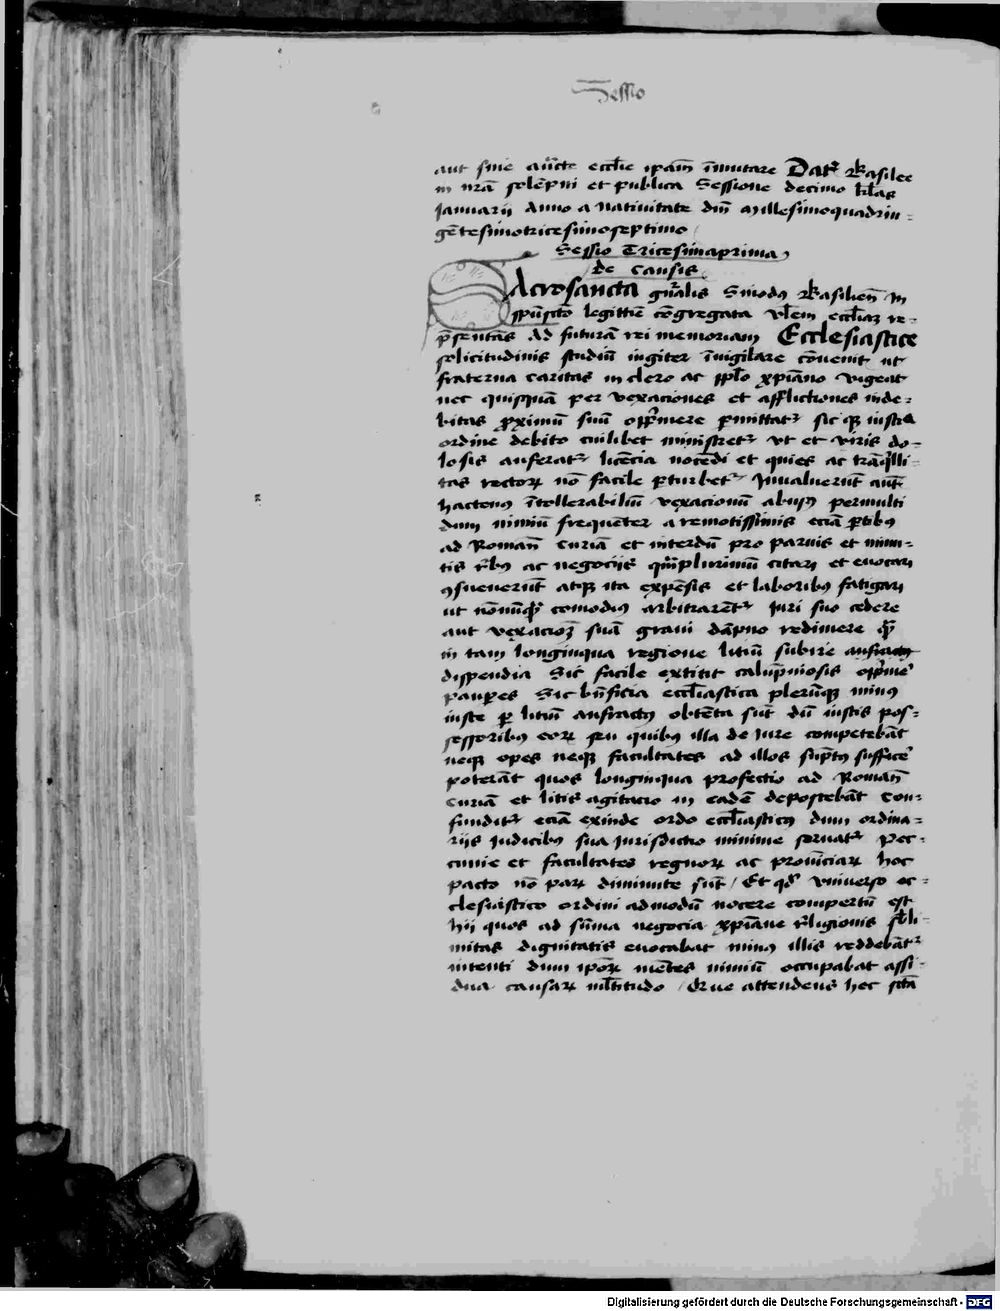 Sessio
aut sine aūcte eccl̄ie ip̄am īmutare Dat̄ Basilee
in nr̄a solēpni et publica Sessione decimo kl̄as
Januarii Anno a Natiuitate dn̄i Millesimoquadrin-
gētesimotricesimoseptimo
Sessio Tricesimaprima
de Causis
SAcrosancta gn̄alis Sinodꝰ Basilien̄ in
sp̄ūsctō legittīe cōgregata vl̄em eccl̄iaꝫ re-
p̄sentās Ad futurā rei memoriam Ecclesiastice
solicitudinis studiū iugiter īuigilare cōuenit ut
fraterna caritas in clero ac pp̄lo xp̄iano vigeat
nec quisquā per vexaciones et afflictiones inde-
bitas ꝓximū suū opp̄mere ꝑmittat᷑ sicqꝫ iusticia
ordine debito cuilibet ministret᷑ vt et viris do-
losis auferat᷑ licēcia nocēdi et quies ac trāq̄lli-
tas rectoꝝ nō facile ꝑturbet᷑ Inualuerūt aūt
hactenꝰ ītollerabiliū vexacionū abusꝰ permulti
dum nimiū frequēter a remotissimis eciā ꝑtibꝰ
ad Romanā curiā et interdū pro paruis et minu-
tis r̄bꝰ ac negociis qm̄plurimū citari et euocari
ꝯsueuerūt atqꝫ ita expēsis et laboribꝰ fatigari
ut nōnūqꝫ̄ comodiꝰ arbitrarēt᷑ iuri suo cedere
aut vexacioꝫ suā graui dāpno redimere qꝫ̄
in tam longinqua regione litiū subire anfractꝰ
dispendia Sic facile extitit calūpniosis opp̄me᷑
pauꝑes Sic bn̄ficia eccl̄iastica plerūqꝫ minꝰ
iuste ꝑ litiū anfractꝰ obtēta sūt dū iustis pos-
sessoribꝰ eoꝝ seu quibꝰ illa de Jure competebāt
neqꝫ opes neqꝫ facultates ad illos sūptꝰ suffice᷑
poterāt quos longinqua profectio ad Romanā
curiā et litis agitacio in eadē deposcebāt Con-
fundit᷑ eciā exinde ordo eccl̄iasticꝰ dum ordina-
riis Judicibꝰ sua Jurisdictio minime seruat᷑ Pec-
cunie et facultates regnoꝝ ac prouīciaꝝ hoc
pacto nō paꝝ diminute sūt / Et qd̄ vniuerso ec-
clesiastico ordini admodū nocere compertū est
hii quos ad sūma negocia xp̄iane r̄ligionis sb̄li-
mitas dignitatis euocabat minꝰ illis reddebāt᷑
intenti dum ip̄oꝝ mētes nimiū occupabat assi-
dua causaꝝ ml̄titudo / Que attendens hec sc̄tā
Digitalisierung gefördert durch die Deutsche Forschungsgemeinschaft - DFG